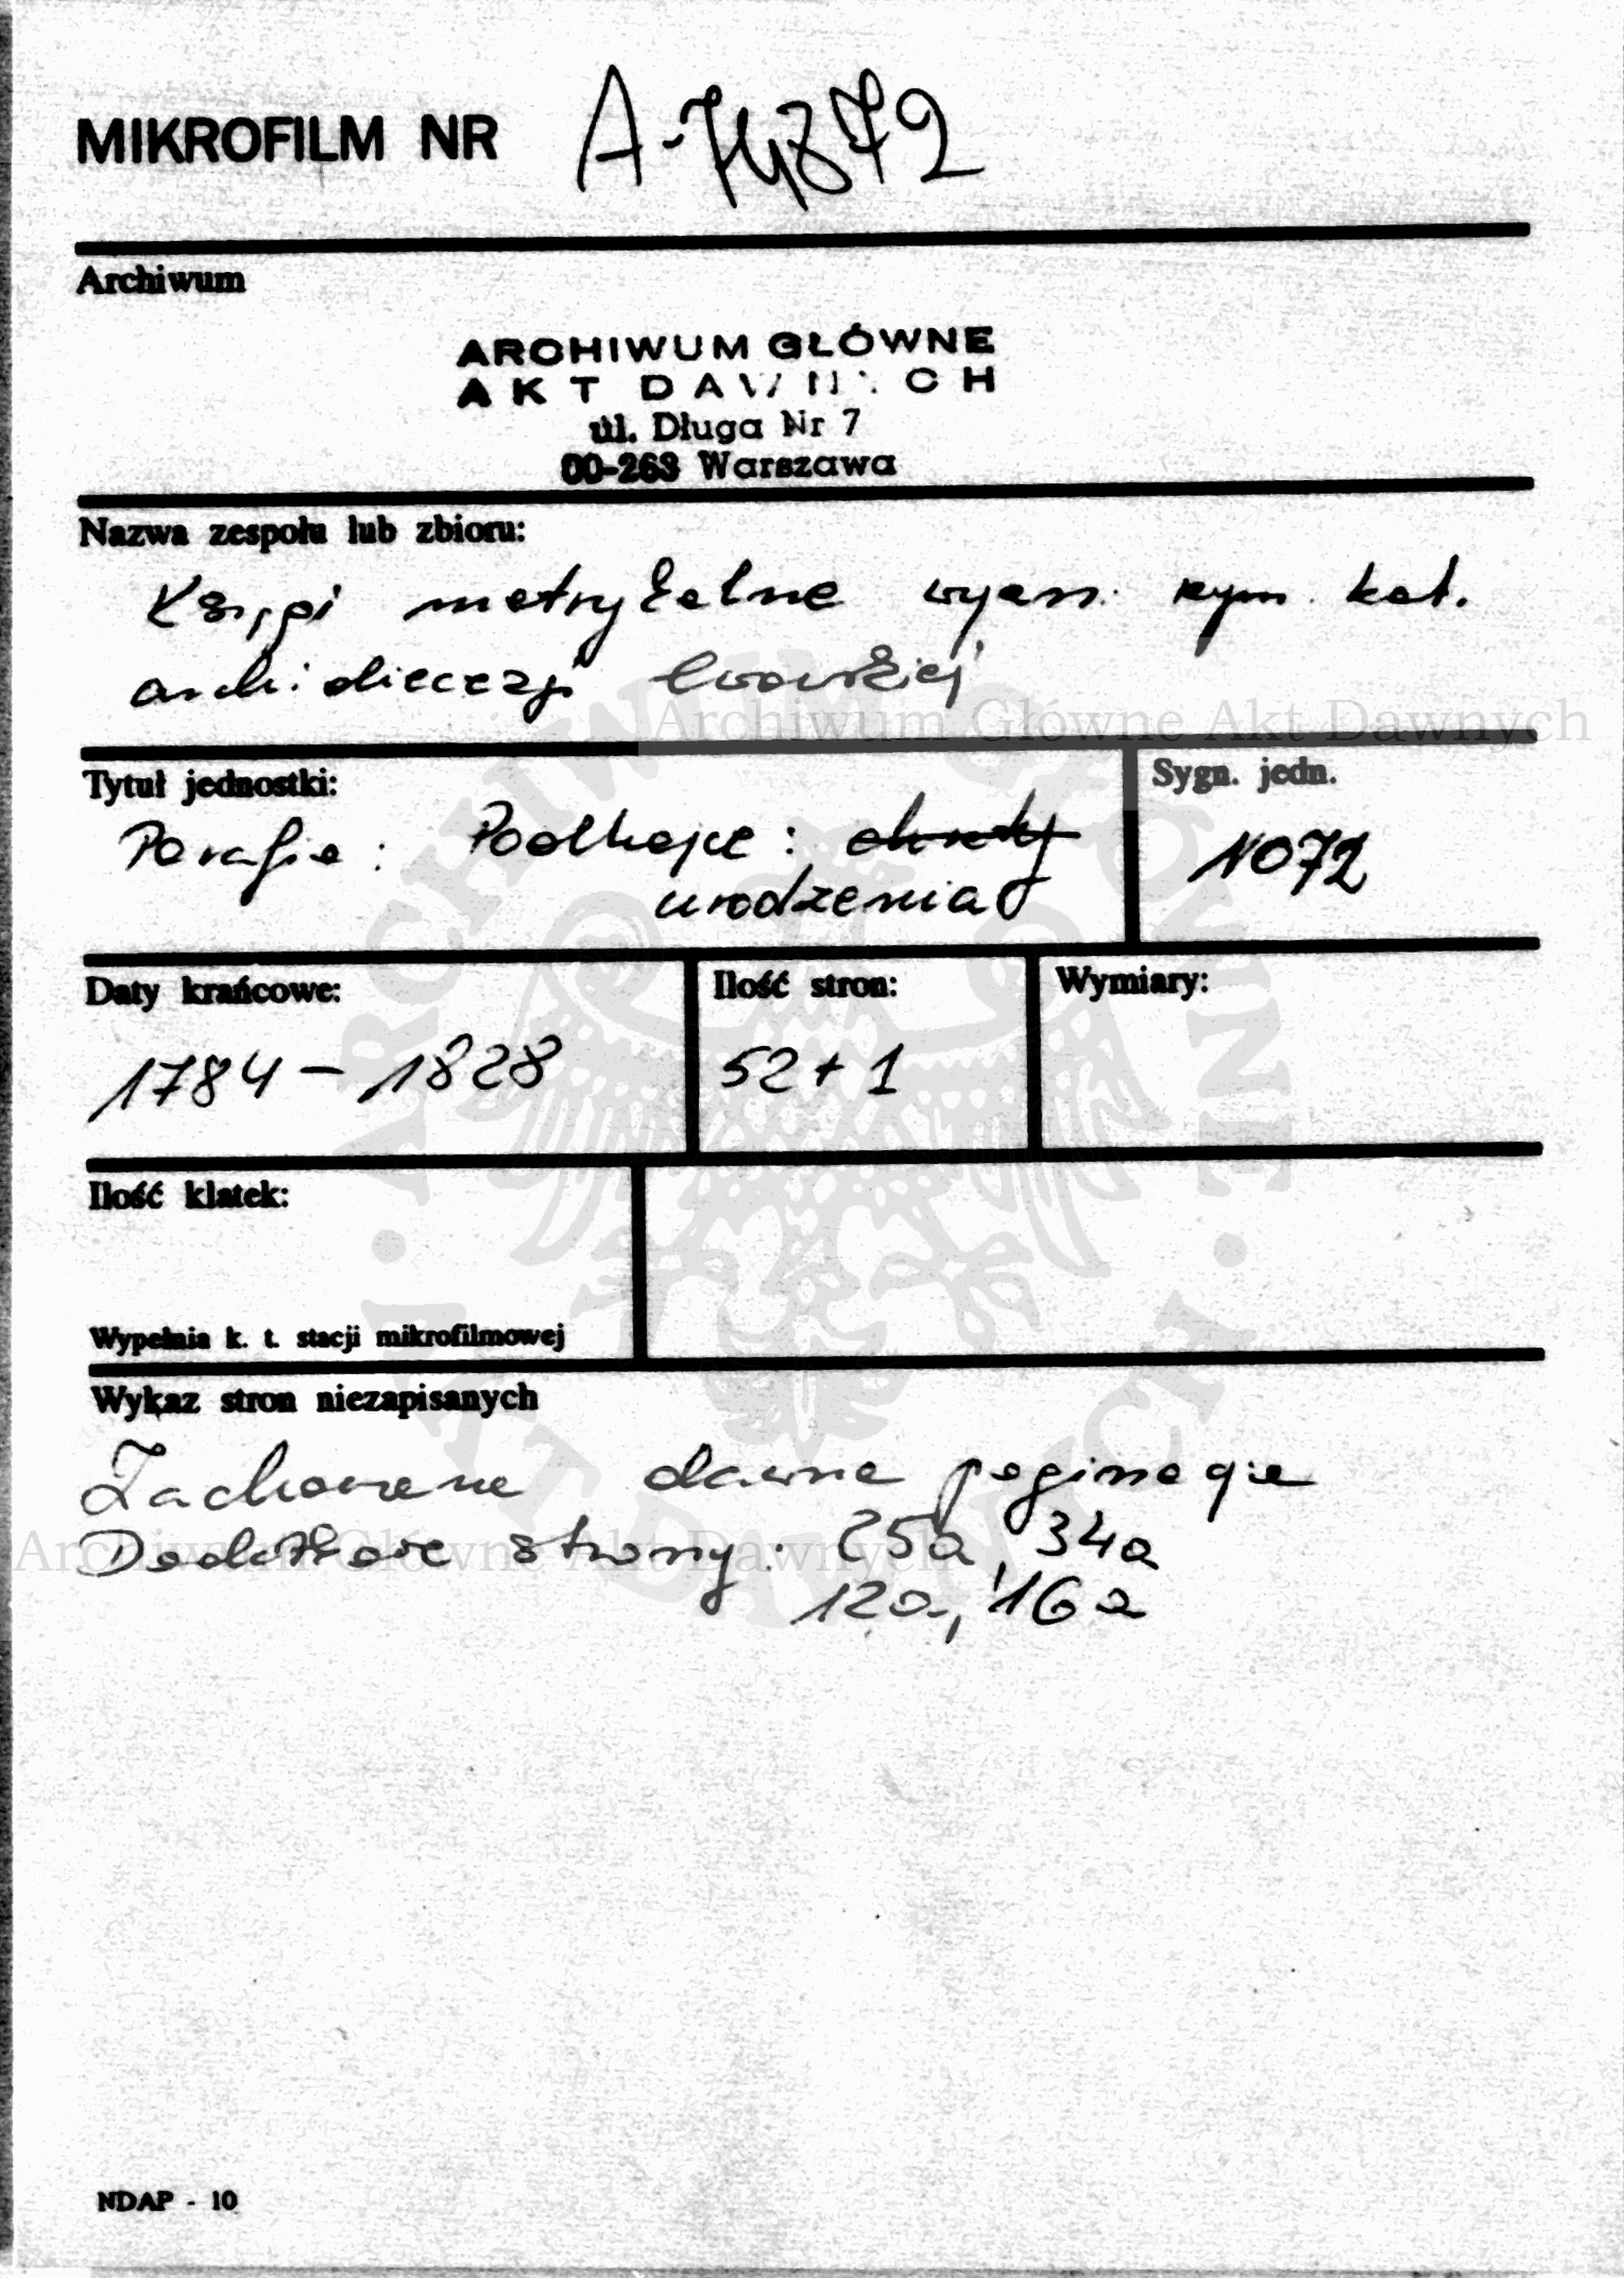 MIKROFILM NR A-74872
Archiwum
ARCHIWUM GŁÓWNE
AKT DAWNYCH
ul. Długa Nr 7
00-263 Warszawa
Nazwa zespołu lub zbioru:
Księgi metrykalne wyzn. rzym. kat.
archidiecezji lwowskiej
Archiwum Główne Akt Dawnych
Tytuł jednostki:
Sygn. jedn.
Parafia: Podhajce: chrzty
urodzenia
1072
Daty krańcowe:
Ilość stron:
Wymiary:
1784 - 1828
52 + 1
Ilość klatek:
Wypełnia k. t. stacji mikrofilmowej
Wykaz stron niezapisanych
Zachowane dawna paginacja
Dodatkowe strony: 25a, 34a
12a, 16a
Archiwum Główne Akt Dawnych
ARCHIWUM GŁÓWNE AKT DAWNYCH
NDAP - 10